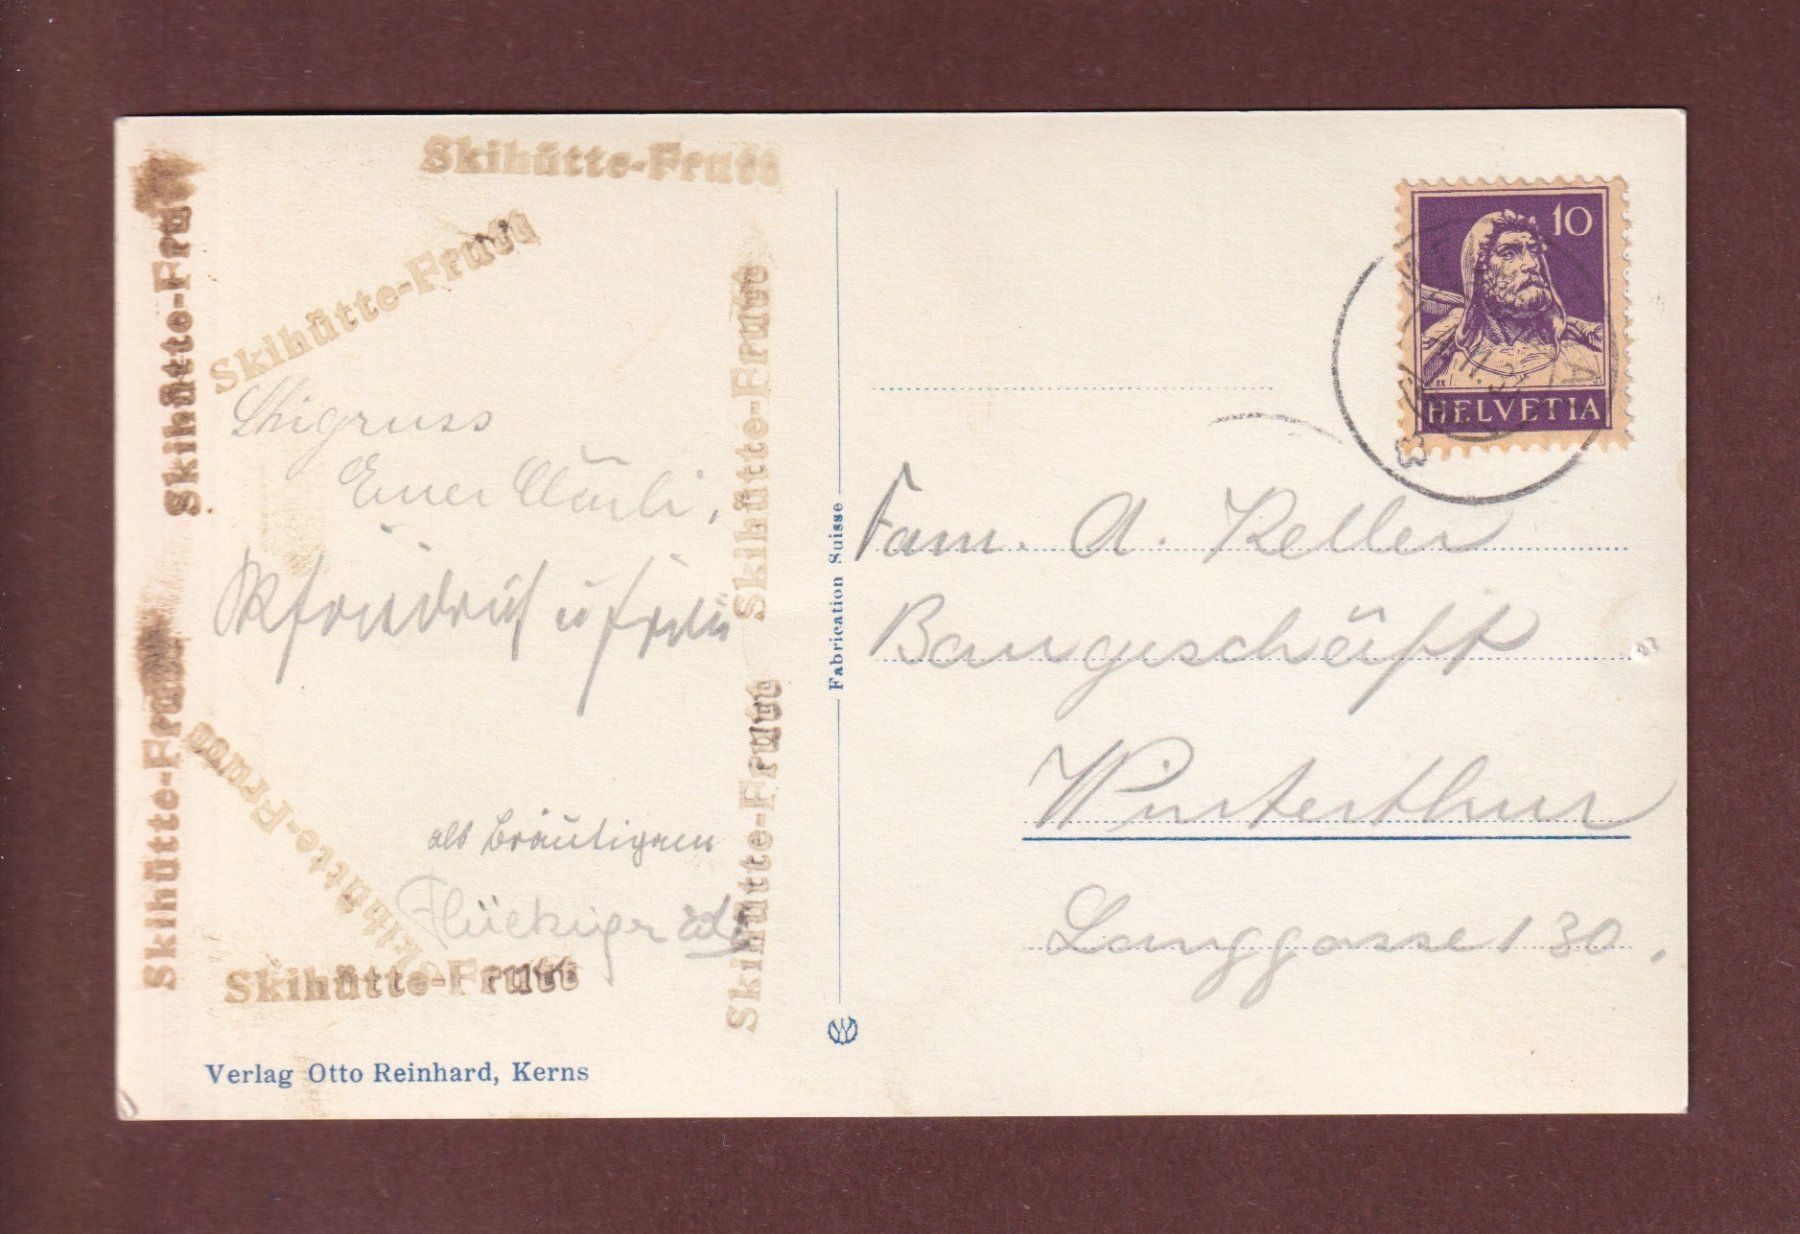 Skihütte-Frutt
Skihütte-Frutt
Skihütte-Frutt
Skihütte-Frutt
Skihütte-Frutt
Skihütte-Frutt
Skihütte-Frutt
Skihütte-Frutt
Skigruss
Euer
Friedrich u
als Bräutigam
Flückiger
Verlag Otto Reinhard, Kerns
Fabrication Suisse
10
HELVETIA
Fam. A. Keller
Baugeschäft
Winterthur
Langgasse 130.